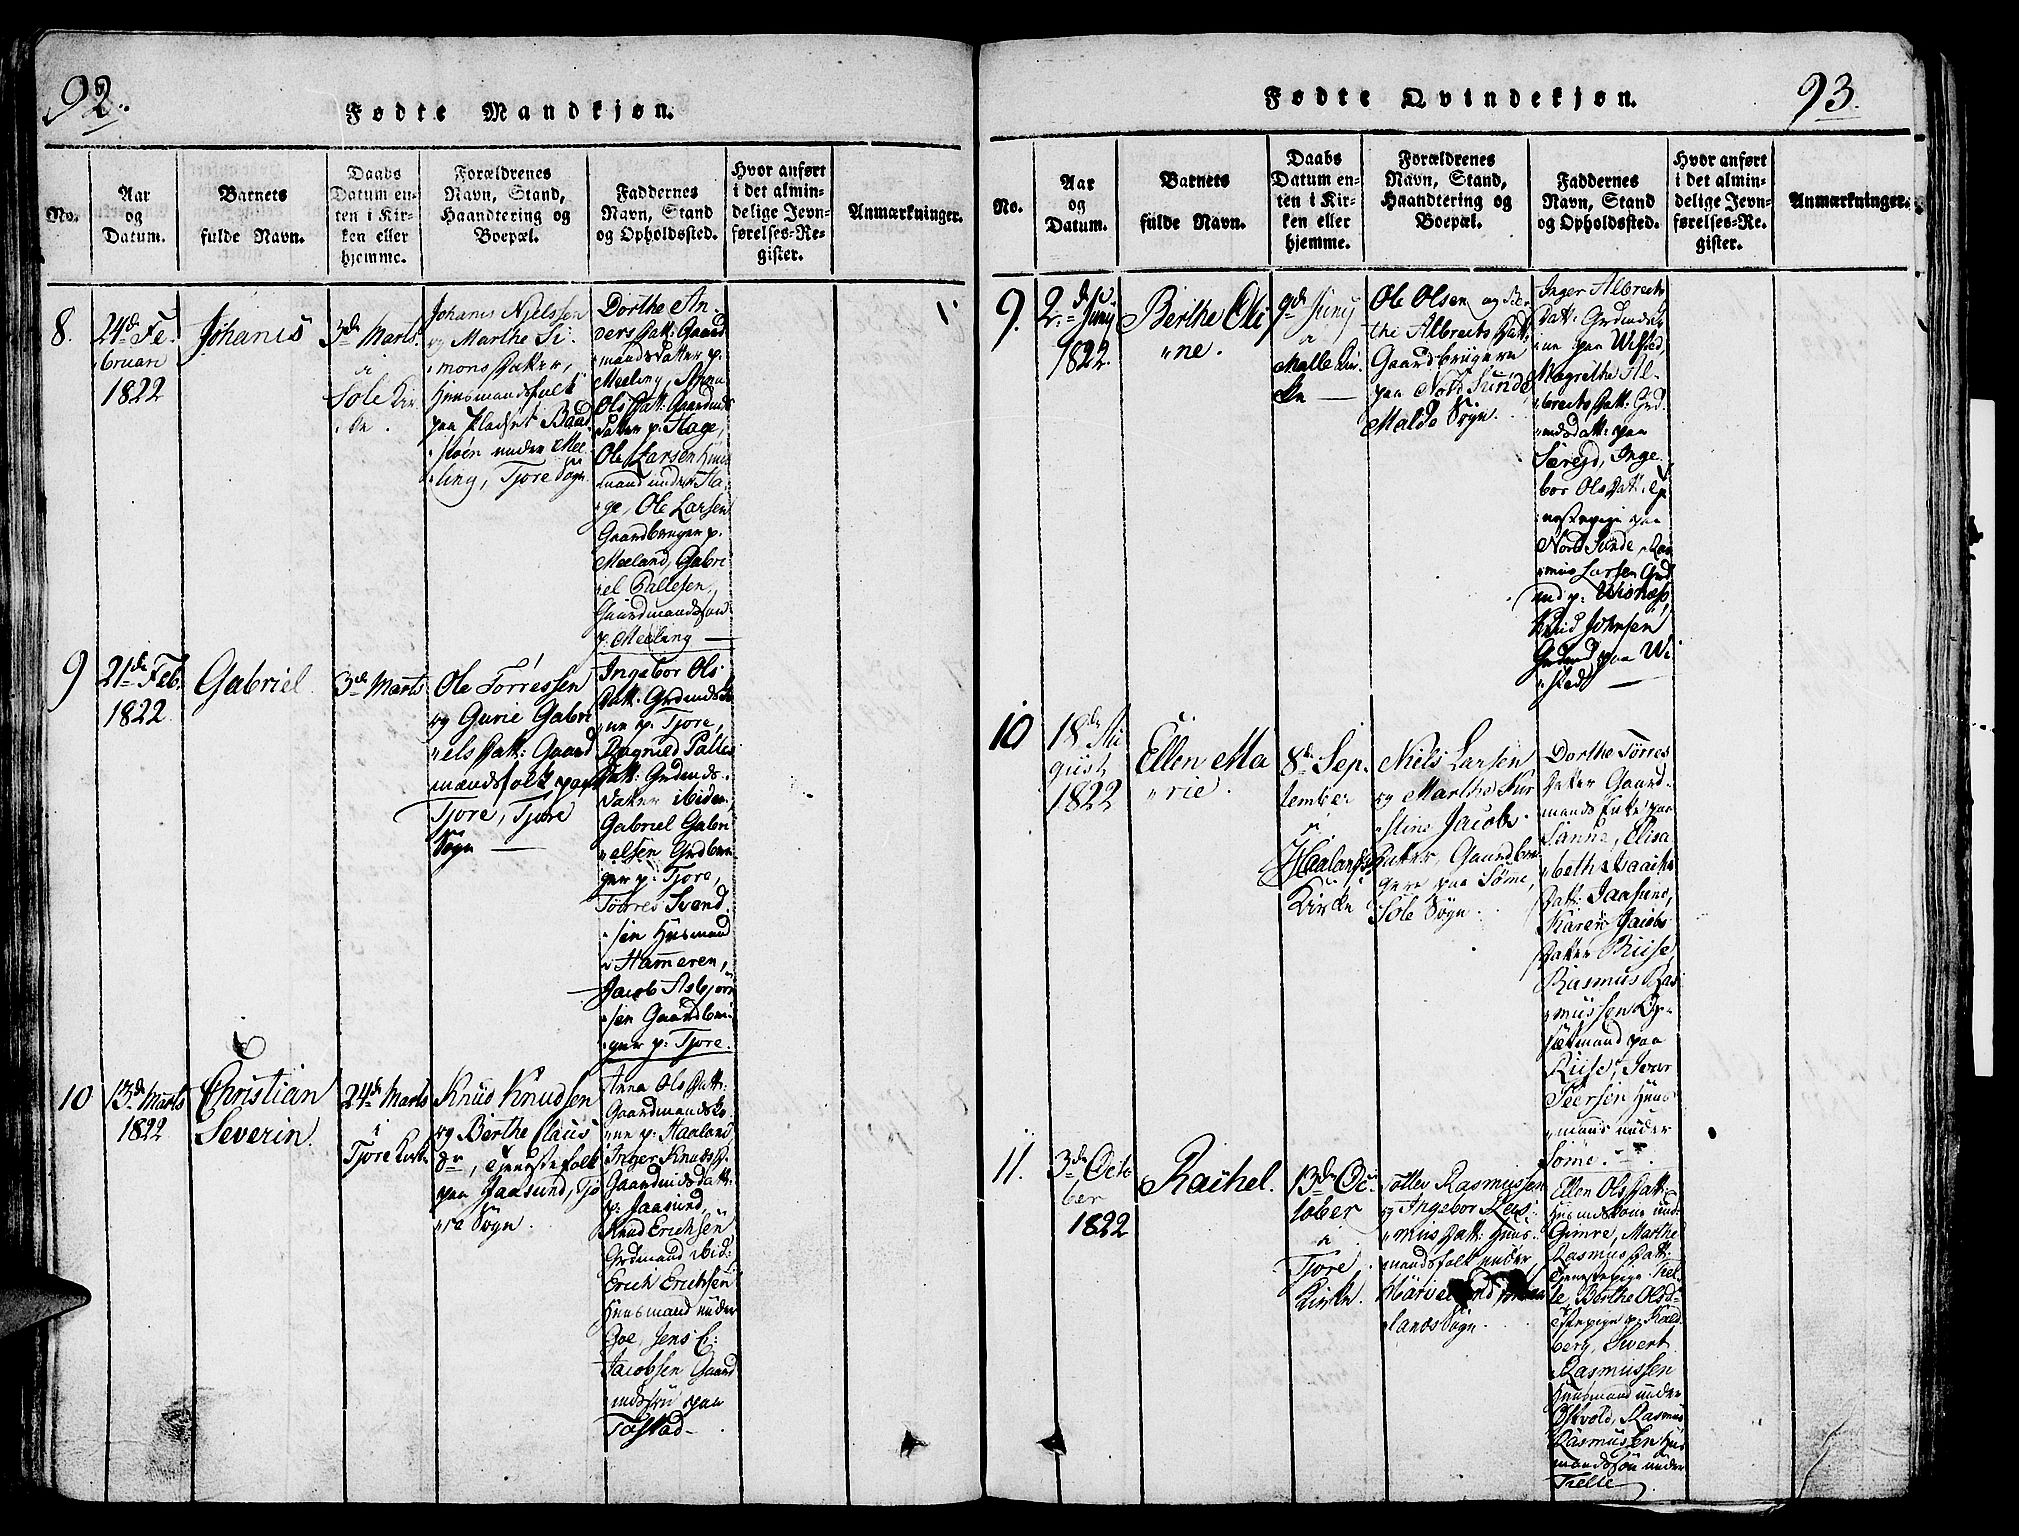 92.
Fødte Mandkjøn.
No.
Aar
og
Datum.
Barnets
fulde Navn.
Daabs
Datum en-
ten i Kir-
ken eller
hjemme.
Forældrenes
Navn, Stand,
Haandtering og
Boepæl.
Faddernes
Navn, Stand
og Opholdssted.
Hvor anført
i det almin-
delige Jevn-
førelses-Re-
gister.
Anmærkninger.
8.
24de Fe-
bruari
1822
Johanis
3de Marts
i
Sole Kir-
ke.
Johanis Nielssen
og Marthe Si-
mons Datter,
Huusmandsfolk
paa Pladset Baad
støen under Mee-
ling, Tjore Sogn
Dorthe An-
ders Datt: Gaard
mandsdatter p:
Meeling, Anna
Ols Datt: Gaardmds
datter p: Hage,
Ole Larsen Huus
mand under Ha-
ge, Ole Larsen
Gaardbruger p:
Meeland, Gabri
el Pallesen,
Gaardmandssøn
p: Meeling
9
21de Feb.
1822
Gabriel.
3de Marts
Ole Torressen
og Gurie Gabri
els Datt: Gaard
mandsfolk paa
Tjore, Tjore
Sogn
Ingebor Ols
Datt: Grdmdsko
ne p: Tjore,
Ragnild Palles
Datt: Grdmds-
datter ibiden,
Gabriel Gabri
elsen Grdbru-
ger p: Tjore,
Torres Svend-
sen Husmand
i Hameren,
Jacob Asbjørn
sen Gaardbru-
ger p: Tjore.
10
13de Marts
1822
Christian
Severin.
24de Marts
i
Tjore Kirk
Knud Knudsen
og Berthe Claus
dr, Tjenestefolk
paa Jaasund, Tjo
re Sogn
Anna Ols Datt:
Gaardmandsko
ne p: Haaland,
Inger Knuds D.
Gaardmdsdatt:
p: Jaasund,
Knud Erichsen
Grdmand ibid:
Erich Erichsen
Huusmand under
Goe, Jens C:
Jacobsen Gaard
mdssøn paa
Tostad
93.
Fødte Qvindekjøn.
No.
Aar
og
Datum.
Barnets
fulde Navn.
Daabs
Datum en-
ten i Kir-
ken eller
hjemme.
Forældrenes
Navn, Stand,
Haandtering og
Boepæl.
Faddernes
Navn, Stand
og Opholdssted.
Hvor anført
i det almin-
delige Jevn-
førelses-Re-
gister.
Anmærkninger.
9.
2de Junij
1822.
Berthe Oli
ne.
9de Junij
i
Malle Kir-
ke
Ole Olsen og Ber
the Albrects Datt:
Gaardbrugere
paa Nord Sunde,
Malde Sogn.
Inger Albrects
Datt: Grdmdsko
ne paa Wisted,
Magrethe Al-
brects Datt: Grd
mdsdatt: paa
Særejd, Inge-
bor Ols Datt: Tje
nestepige paa
Nord Sunde, Ras
mus Larsen Grd
md p: Wisnæs,
Knud Johnsen
Grdmd paa Wi
sted
10
18de Au
gust
1822
Ellen Ma
rie.
8de Sep-
tember
i
Haalands
Kirke
Niels Larsen
og Marthe Kir
stine Jacobs
Datter, Gaardbru
gere paa Sømme,
Sole Sogn.
Dorthe Torres
Datter Gaard-
mands Enke paa
Sanne, Elisa
beth Isaachs
Datt: Jaasund,
Karen Jacobs
Datter Riise,
Rasmus Ras
mussen Op-
sætmand paa
Riise, Iver
Peersen Huus
mand under
Sømme.
11.
3de Octo
ber
1822
Rachel.
13de Oc-
tober
i
Tjore
Kirke.
Otte Rasmussen
og Ingebor Ras-
mus Datt: Huus-
mandsfolk under
Harveland, Haa
lands Sogn.
Ellen Ols Datt:
Huusmdskone und:
Gimre, Marthe
Rasmus Datt:
Tjenestepige Tiel-
le, Berthe Olsd:
Tstepige p: Kold-
berg, Sivert
Rasmussen
Huusmand under
Østvold, Rasmus
Rasmussen Huus
mandssøn under
Tielle